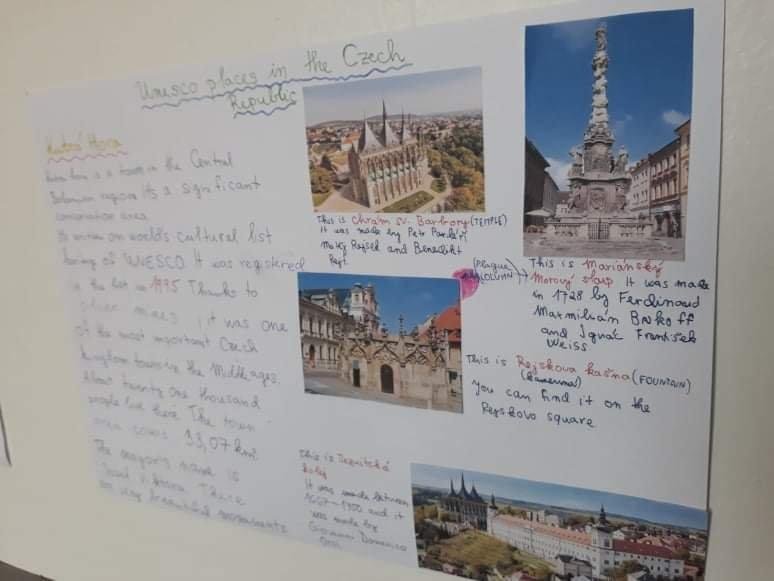 Unesco places in the Czech
Republic
Kutná Hora
is a town in the Central
Bohemian region. Its a significant
conservation area.
on world's cultural list
of UNESCO. It was registered
in the list in 1995. Thanks to
silver mines, it was one
of the most important Czech
kingdom towns in the Middle ages.
About twenty one thousand
people live here. The town
area covers 33,07 km².
The mayors name is
There
are very beautiful monuments
This is Chrám sv. Barbory (TEMPLE)
It was made by Petr Parléř
Matěj Rejsek and Benedikt
Rejt.
(Plague
This is Mariánský
Morový sloup It was made
in 1728 by Ferdinand
Maxmilián Brokoff
and Ignác František
Weiss
This is Rejskova kašna (FOUNTAIN)
(kamenná)
You can find it on the
Rejskovo square
This is Jezuitská
kolej
It was made between
1667-1700 and it
was made by
Giovanni Domenico
Orsi.